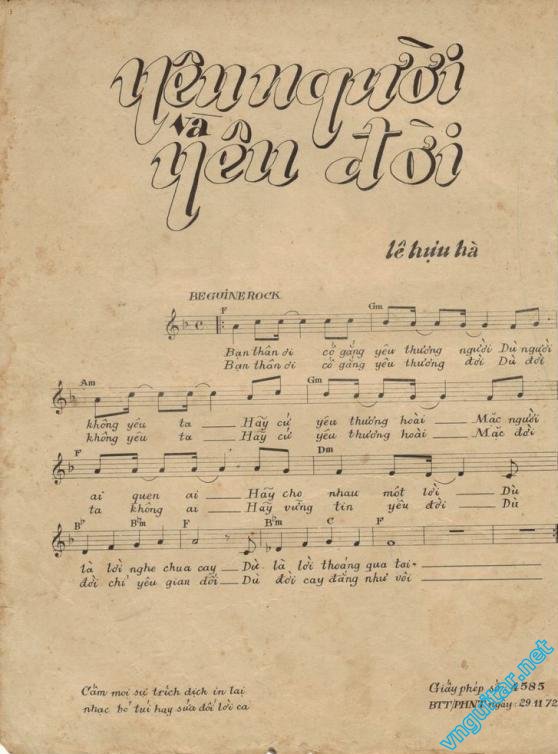 Yêu người
và
yêu đời
lê hựu hà
BEGUINE ROCK
F Gm
Bạn thân ơi cố gắng yêu thương người Dù người
Bạn thân ơi cố gắng yêu thương đời Dù đời
Am Gm
không yêu ta Hãy cứ yêu thương hoài Mặc người
không yêu ta Hãy cứ yêu thương hoài Mặc đời
F Dm
ai quen ai Hãy cho nhau một lời Dù
ta không ai Hãy vững tin yêu đời Dù
Bb Bbm F Bbm C F
là lời nghe chua cay Dù là lời thoảng qua tai
đời chỉ yêu gian dối Dù đời cay đắng như vôi
Cấm mọi sự trích dịch in lại
nhạc bỏ túi hay sửa đổi lời ca
Giấy phép số: 4585
BTT/PHNT ngày: 29.11.72
vnguitar.net